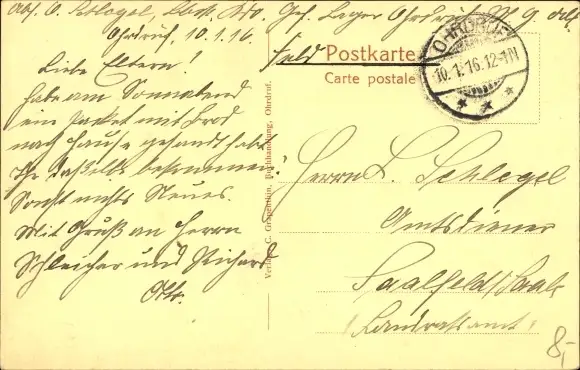 Abs. O. Schlegel, Gef. Lager Ohrdruf
Ohrdruf, 10.1.16.
Liebe Eltern!
habe am Sonnabend
ein Packet mit Brod
nach Hause gesandt habt
Ihr dasselbe bekommen?
Sonst nichts Neues.
Mit Gruß an Herrn
Schleicher und Richard
Otto.
Feld Postkarte
Carte postale
OHRDRUF
10.1.16.12-1N
Verlag C. Buchhandlung, Ohrdruf.
Herrn L. Schlegel
Amtsdiener
Saalfeld/Saale
(Landratsamt)
8,-